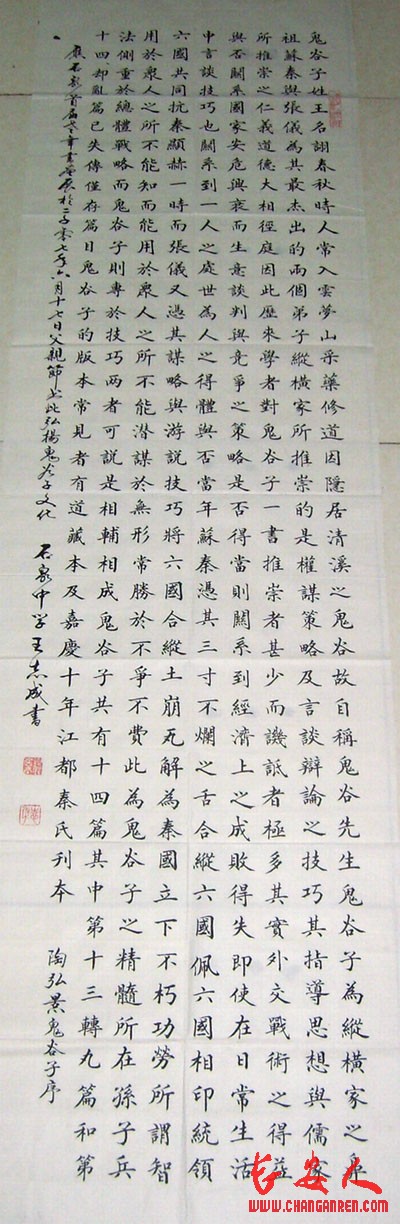 鬼谷子姓王名詡春秋時人常入雲夢山采藥修道因隱居清溪之鬼谷故自稱鬼谷先生鬼谷子為縱橫家之鼻
祖蘇秦與張儀為其最杰出的兩個弟子縱橫家所推崇的是權謀策略及言談辯論之技巧其指導思想與儒家
所推崇之仁義道德大相徑庭因此歷來學者對鬼谷子一書推崇者甚少而譏詆者極多其實外交戰術之得益
與否關系國家安危興衰而生意談判與競爭之策略是否得當則關系到經濟上之成敗得失即使在日常生活
中言談技巧也關系到一人之處世為人之得體與否當年蘇秦憑其三寸不爛之舌合縱六國佩六國相印統領
六國共同抗秦顯赫一時而張儀又憑其謀略與游說技巧將六國合縱土崩瓦解為秦國立下不朽功勞所謂智
用於衆人之所不能知而能用於衆人之所不能潜謀於無形常勝於不爭不費此為鬼谷子之精髓所在孫子兵
法側重於總體戰略而鬼谷子則專於技巧兩者可說是相輔相成鬼谷子共有十四篇其中第十三轉九篇和第
十四却亂篇已失傳僅存篇目鬼谷子的版本常見者有道藏本及嘉慶十年江都秦氏刊本 陶弘景鬼谷子序
應石泉首届書展於二千零七年六月十七日父親節書此弘揚鬼谷子文化 石泉中学王志成書
长安人
WWW.CHANGANREN.COM